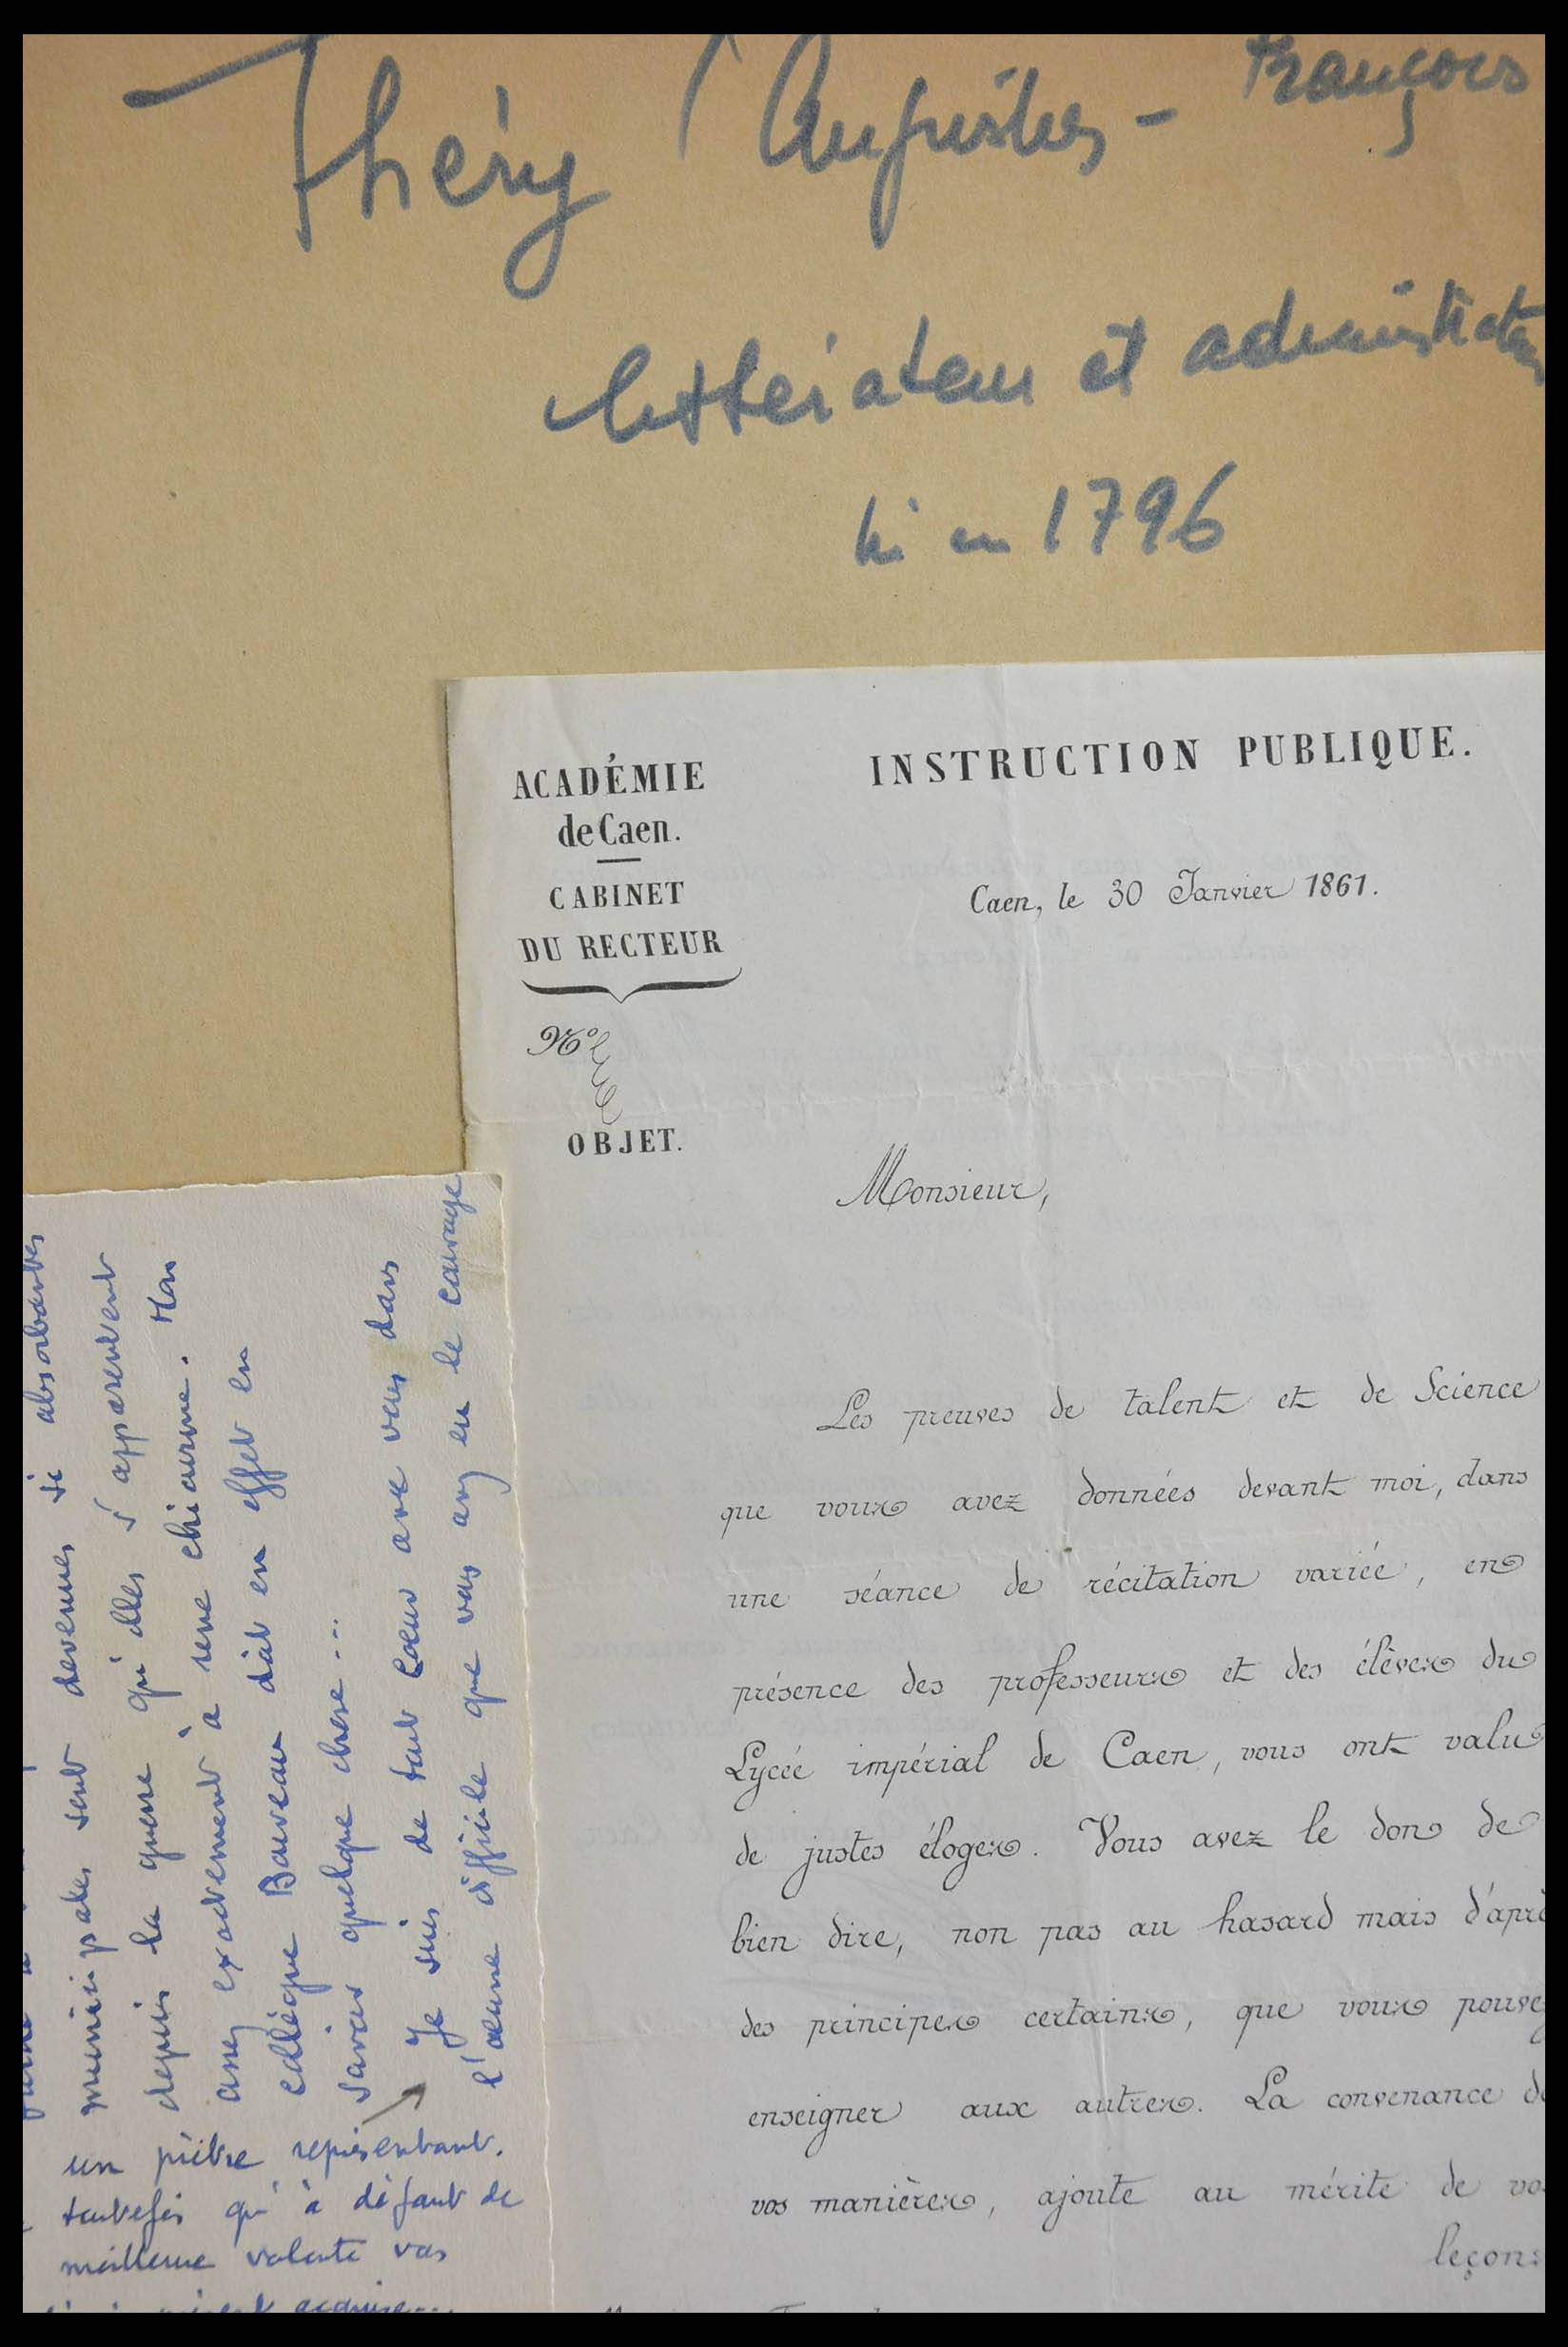 Théry (Augustin-François
littérateur et administrateur
né en 1796
ACADÉMIE
de Caen.
CABINET
DU RECTEUR
N°
OBJET.
INSTRUCTION PUBLIQUE.
Caen, le 30 Janvier 1861.
Monsieur,
Les preuves de talent et de Science
que vous avez données devant moi, dans
une séance de récitation variée, en
présence des professeurs et des élèves du
Lycée impérial de Caen, vous ont valu
de justes éloges. Vous avez le don de
bien dire, non pas au hasard mais d'aprè
des principes certains, que vous pouvez
enseigner aux autres. La convenance de
vos manières, ajoute au mérite de vos
leçons
si absorbantes
municipales sont devenues
depuis la guerre qu'elles s'apparentent
assez exactement à une chiourme. Mon
collègue Bauveau doit en effet en
savoir quelque chose...
Je suis de tout coeur avec vous dans
l'oeuvre difficile que vous avez eu le courage
un piètre représentant.
toutefois qu'à défaut de
meilleure volonté vous